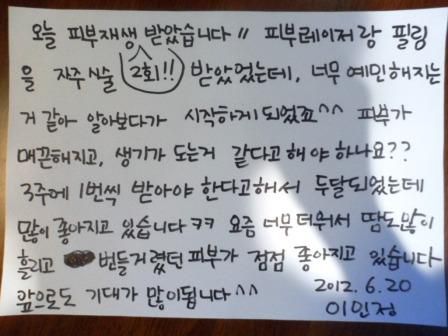 오늘 피부재생 받았습니다 〃 피부레이저랑 필링
을 자주 시술 2회!! 받았었는데, 너무 예민해지는
거 같아 알아보다가 시작하게 되었죠^^ 피부가
매끈해지고, 생기가 도는거 같다고 해야 하나요??
3주에 1번씩 받아야 한다고해서 두달되었는데
많이 좋아지고 있습니다 ㅋㅋ 요즘 너무 더워서 땀도 많이
흘리고 번들거렸던 피부가 점점 좋아지고 있습니다
앞으로도 기대가 많이됩니다^^ 2012. 6. 20
이민정